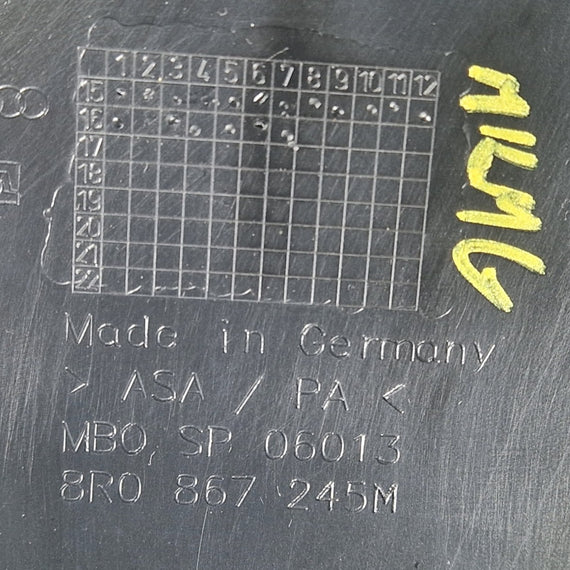 1 2 3 4 5 6 7 8 9 10 11 12
15
16
17
18
19
20
21
22
Made in Germany
> ASA / PA <
MBO, SP 06013
8R0 867 245M